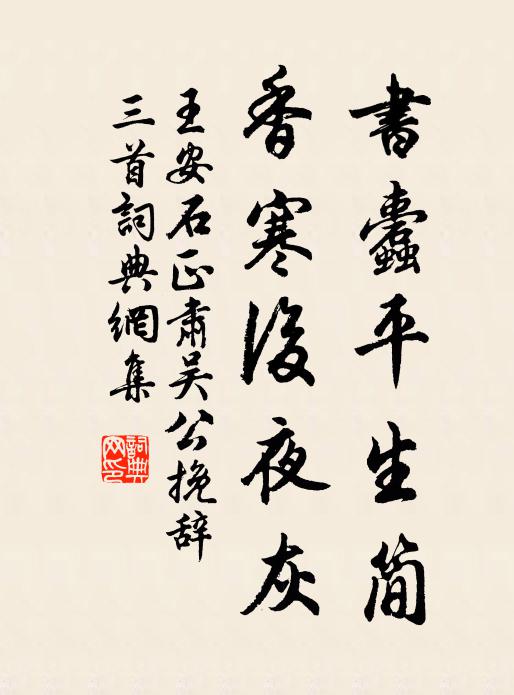 書蠹平生簡
香寒後夜灰
王安石正肅吴公挽辞
三首詞典網集
詞典网印